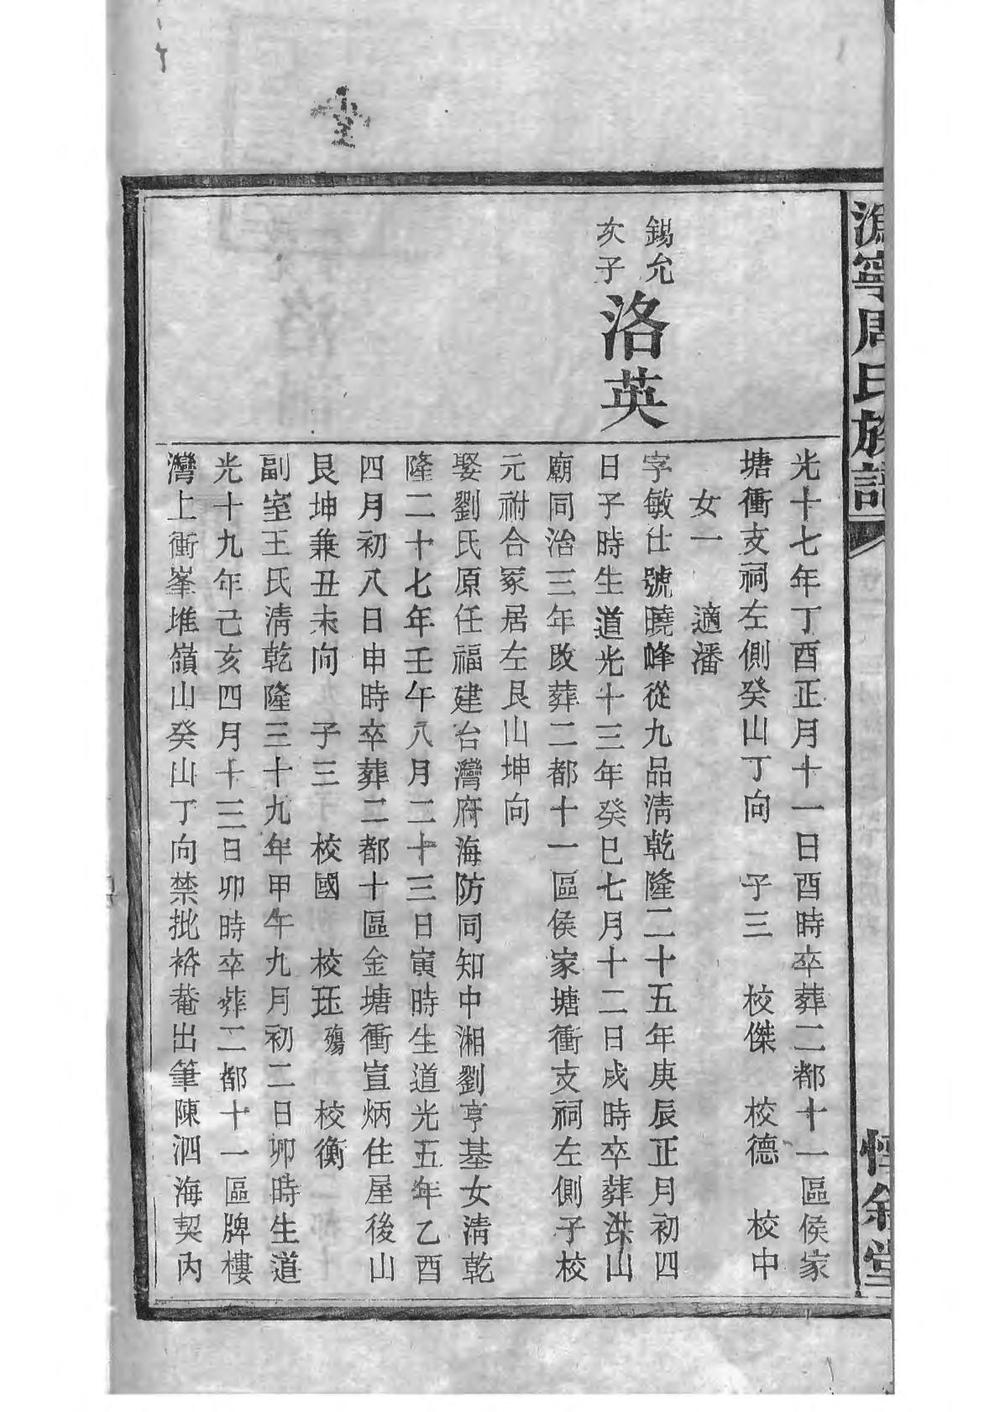 寧周氏族譜
惇敘堂
光十七年丁酉正月十一日酉時卒葬二都十一區侯家
塘衝支祠左側癸山丁向 子三 校傑 校德 校中
女一 適潘
錫允
次子
洛英
字敏仕號曉峰從九品清乾隆二十五年庚辰正月初四
日子時生道光十三年癸巳七月十二日戌時卒葬洪山
廟同治三年改葬二都十一區侯家塘衝支祠左側子校
元祔合冢居左艮山坤向
娶劉氏原任福建台灣府海防同知中湘劉亨基女清乾
隆二十七年壬午八月二十三日寅時生道光五年乙酉
四月初八日申時卒葬二都十區金塘衝宣炳住屋後山
艮坤兼丑未向 子三 校國 校珏殤 校衡
副室王氏清乾隆三十九年甲午九月初二日卯時生道
光十九年己亥四月十三日卯時卒葬二都十一區牌樓
灣上衝峯堆嶺山癸山丁向禁批裕菴出筆陳泗海契內